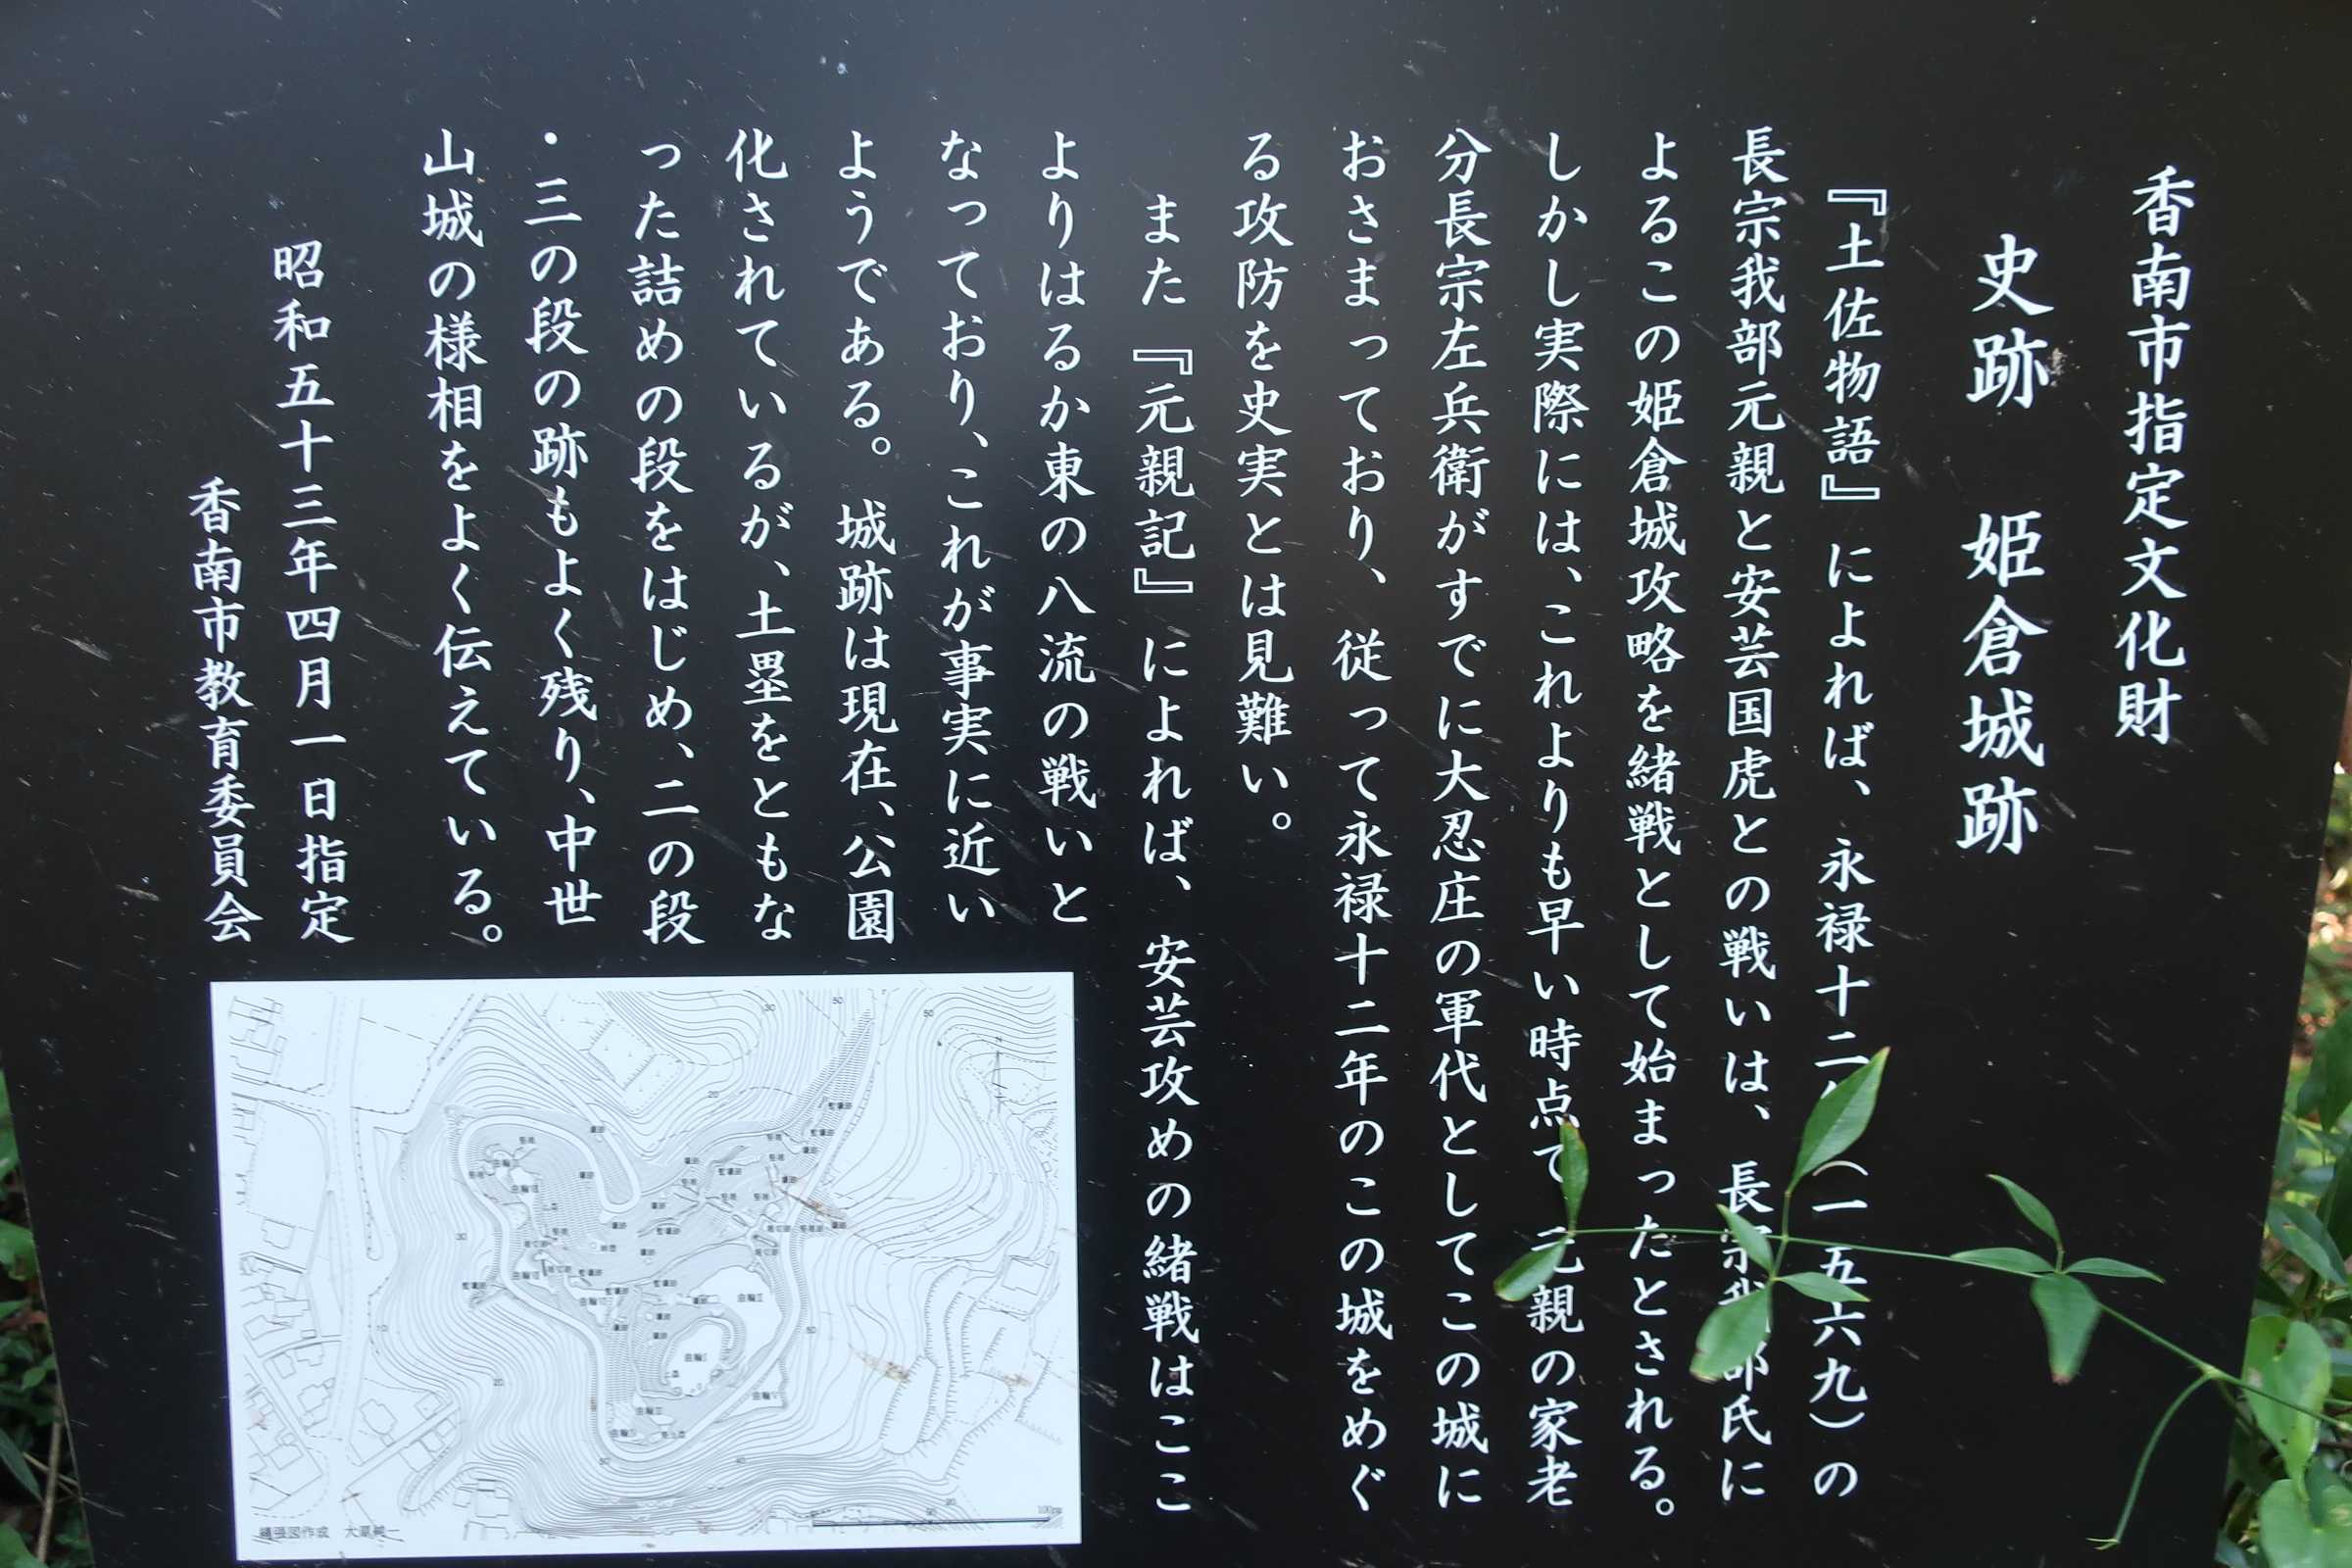 香南市指定文化財
史跡　姫倉城跡
『土佐物語』によれば、永禄十二（一五六九）の
長宗我部元親と安芸国虎との戦いは、長宗我部氏に
よるこの姫倉城攻略を緒戦として始まったとされる。
しかし実際には、これよりも早い時点で元親の家老
分長宗左兵衛がすでに大忍庄の軍代としてこの城に
おさまっており、従って永禄十二年のこの城をめぐ
る攻防を史実とは見難い。
また『元親記』によれば、安芸攻めの緒戦はここ
よりはるか東の八流の戦いと
なっており、これが事実に近い
ようである。城跡は現在、公園
化されているが、土塁をともな
った詰めの段をはじめ、二の段
・三の段の跡もよく残り、中世
山城の様相をよく伝えている。
昭和五十三年四月一日指定
香南市教育委員会
50
30
50
N
20
30
10
20
50
40
50
30
20
曲輪Ⅰ
曲輪Ⅱ
曲輪Ⅲ
曲輪Ⅳ
曲輪Ⅴ
100m
縄張図作成　大原純一